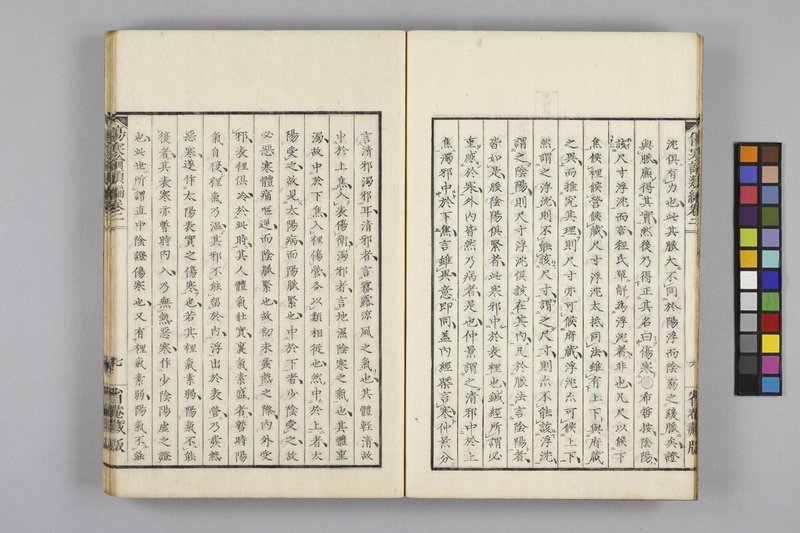 傷寒論類編卷二
沈俱有力也此其脈大不同於陽浮而陰弱之緩脈與證
與脈應得其實然後乃得正其名曰傷寒〇希哲按陰陽
該尺寸浮沈而言程氏單解為浮沈者非也凡尺以候下
焦候裡候營候藏尺寸浮沈大抵同法雖有上下與府藏
之異而推究其理則尺寸亦可候府藏浮沈亦可候上下
然謂之浮沈則不能該尺寸謂之尺寸則亦不能該浮沈
謂之陰陽則尺寸浮沈俱該在其內凡於脈法言陰陽者
皆如是脈陰陽俱緊者此寒邪中於表裡也鍼經所謂必
重感於寒外內皆然乃病者是也仲景謂之清邪中於上
焦濁邪中於下焦言雖異意即同蓋內經緊言寒仲景分
言清邪濁邪耳清邪者言霧露涼風之氣也其體輕清故
中於上焦入表傷衛濁邪者言地濕陰寒之氣也其體重
濁故中於下焦入裡傷營各以類相從也然中於上者太
陽受之故見太陽病而陽脈緊也中於下者少陰受之故
必惡寒體痛嘔逆而陰脈緊也故初未發熱之際內外受
邪表裡俱冷於此時其人體氣壯實裏氣素盛者暫時陽
氣自復裡氣乃溫其邪不能留於內浮出於表營乃發熱
惡寒遂作太陽表實之傷寒也若其裡氣素弱陽氣不能
復者其表寒亦暫時內入乃無熱惡寒作少陰陽虛之證
也此世所謂直中陰證傷寒也又有裡氣素弱陽氣不能
傷寒論類編卷二
七
省菴藏版